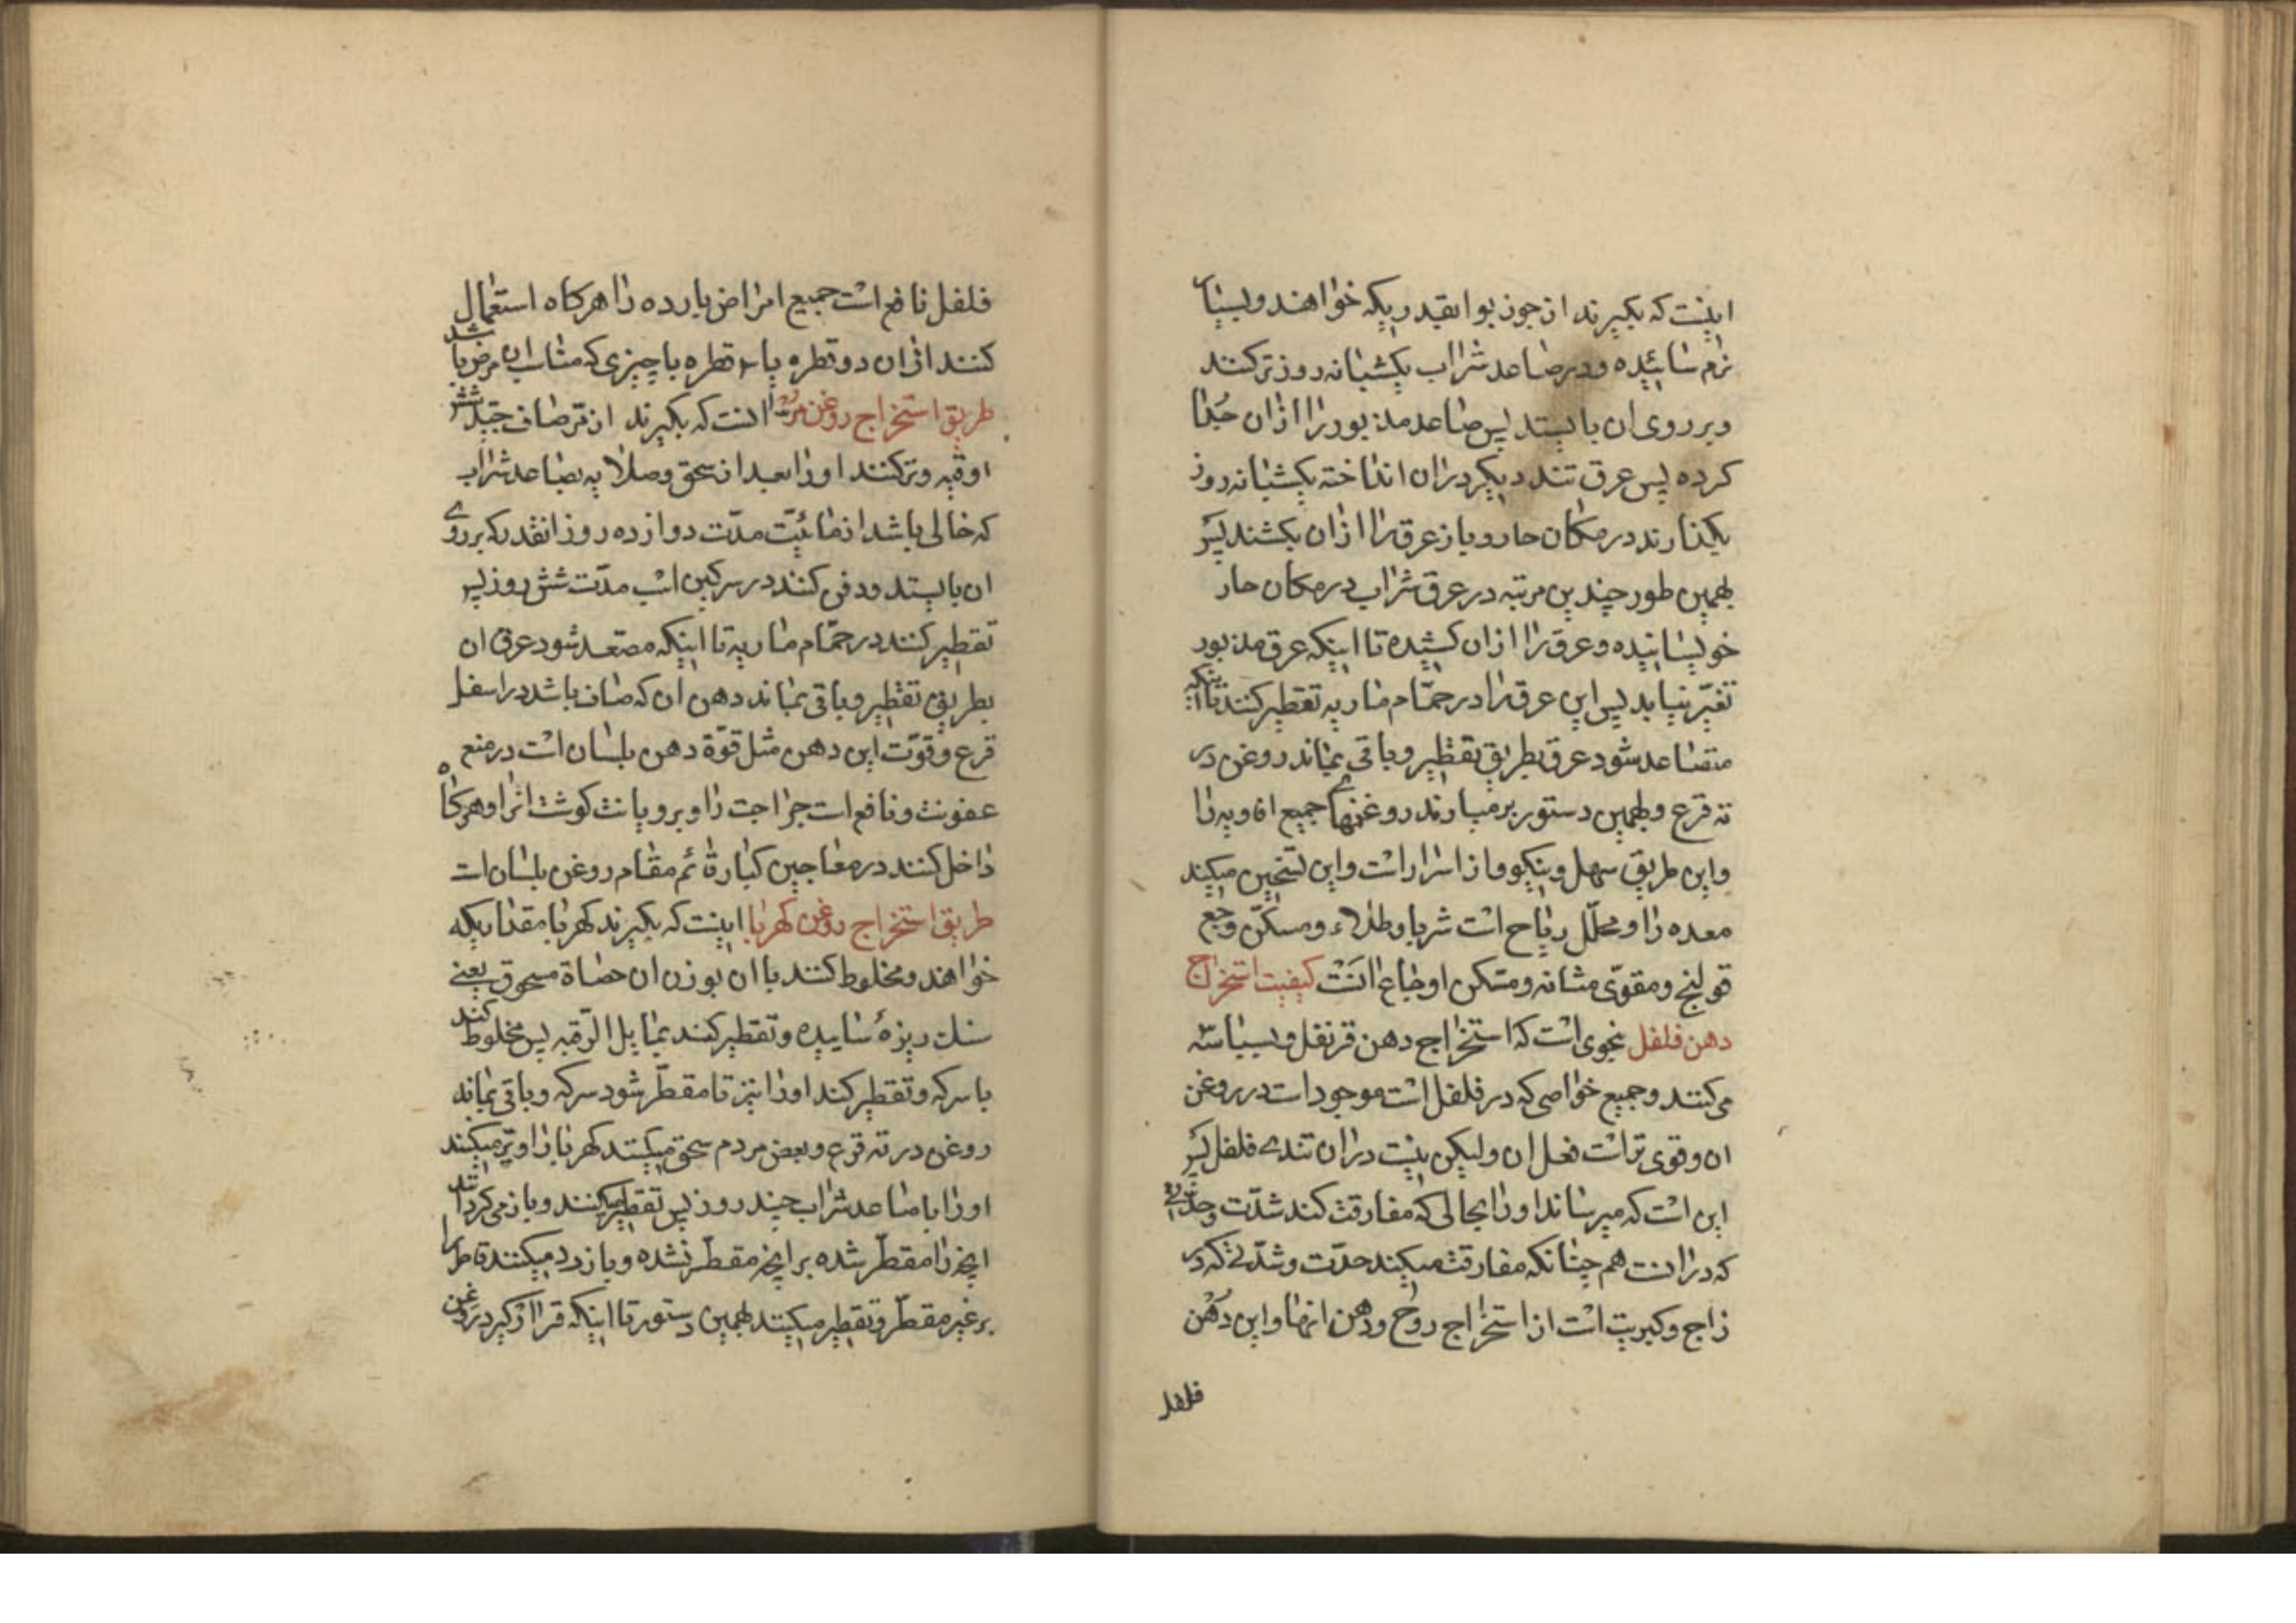 اینست که بکیرند از جوز بوا بقدریکه خواهند و بسیار
نرم سائیده و در صاعد شراب یکشبانه روز تر کنند
و بر روی ان بایستد پس صاعد مذبور را از ان جدا
کرده پس عرق تند دیکر در ان انداخته یکشبانه روز
بکذارند در مکان حار و باز عرق را از ان بکشند پس
بهمین طور چندین مرتبه در عرق شراب در مکان حار
خویسانیده و عرق را از ان کشیده تا اینکه عرق مذبور
تغیّر نیابد پس این عرق را در حمّام ماریه تقطیر کنند تا اینکه
متصاعد شود عرق بطریق تقطیر و باقی بماند روغن در
ته قرع و بهمین دستور برمیارند روغنهای جمیع افاویه را
و این طریق سهل و نیکو و از اسرار است و این تسخین میکند
معده را و محلّل ریاح است شربا و طلاء و مسکّن وجع
قولنج و مقوّی مثانه و مسکن اوجاع انست کیفیت استخراج
دهن فلفل بنحوی است که استخراج دهن قرنفل و بسباسه
می کنند و جمیع خواصی که در فلفل است موجود است در روغن
ان و قوی تر است فعل ان و لیکن نیست در ان تندی فلفل پس
این است که میرساند او را بحالی که مفارقت کند شدّت و حدّتی
که در انست هم چنانکه مفارقت میکند حدّت و شدّتی که در
زاج و کبریت است از استخراج روح و دهن انها و این دهن
فلفل
فلفل نافع است جمیع امراض بارده را هرکاه استعمال
کنند از ان دو قطره یا ۳ قطره با چیزی که مناسب ان مرض باشد
طریق استخراج روغن مرّ انست که بکیرند از مرّ صاف جیّد شش
اوقیه و تر کنند او را بعد از سحق و صلایه بصاعد شراب
که خالی باشد از مائیّت مدّت دوازده روز انقدر که بر روی
ان بایستد و دفن کنند در سرکین اسب مدّت شش روز پس
تقطیر کنند در حمّام ماریه تا اینکه مصّعد شود عرق ان
بطریق تقطیر و باقی بماند دهن ان که صاف باشد در اسفل
قرع و قوّت این دهن مثل قوّة دهن بلسان است در منع
عفونت و نافع است جراحت را و برویانت کوشت انرا و هرکاه
داخل کنند در معاجین کبار قائم مقام روغن بلسان است
طریق استخراج روغن کهربا اینست که بکیرند کهربا مقداریکه
خواهند و مخلوط کنند با ان بوزن ان حصاة مسحوق یعنی
سنك ریزهٔ سائیده و تقطیر کنند بمایل الرّقبه پس مخلوط کنند
با سرکه و تقطیر کنند او را نیز تا مقطّر شود سرکه و باقی بماند
روغن در ته قرع و بعض مردم سحق میکنند کهربا را و تر میکنند
او را با صاعد شراب چند روز پس تقطیر میکنند و باز می کردانند
انچه را مقطّر شده بر انچه مقطّر نشده و باز رد میکنند قاطر را
بر غیر مقطّر و تقطیر میکنند بهمین دستور تا اینکه قرار کیرد روغن